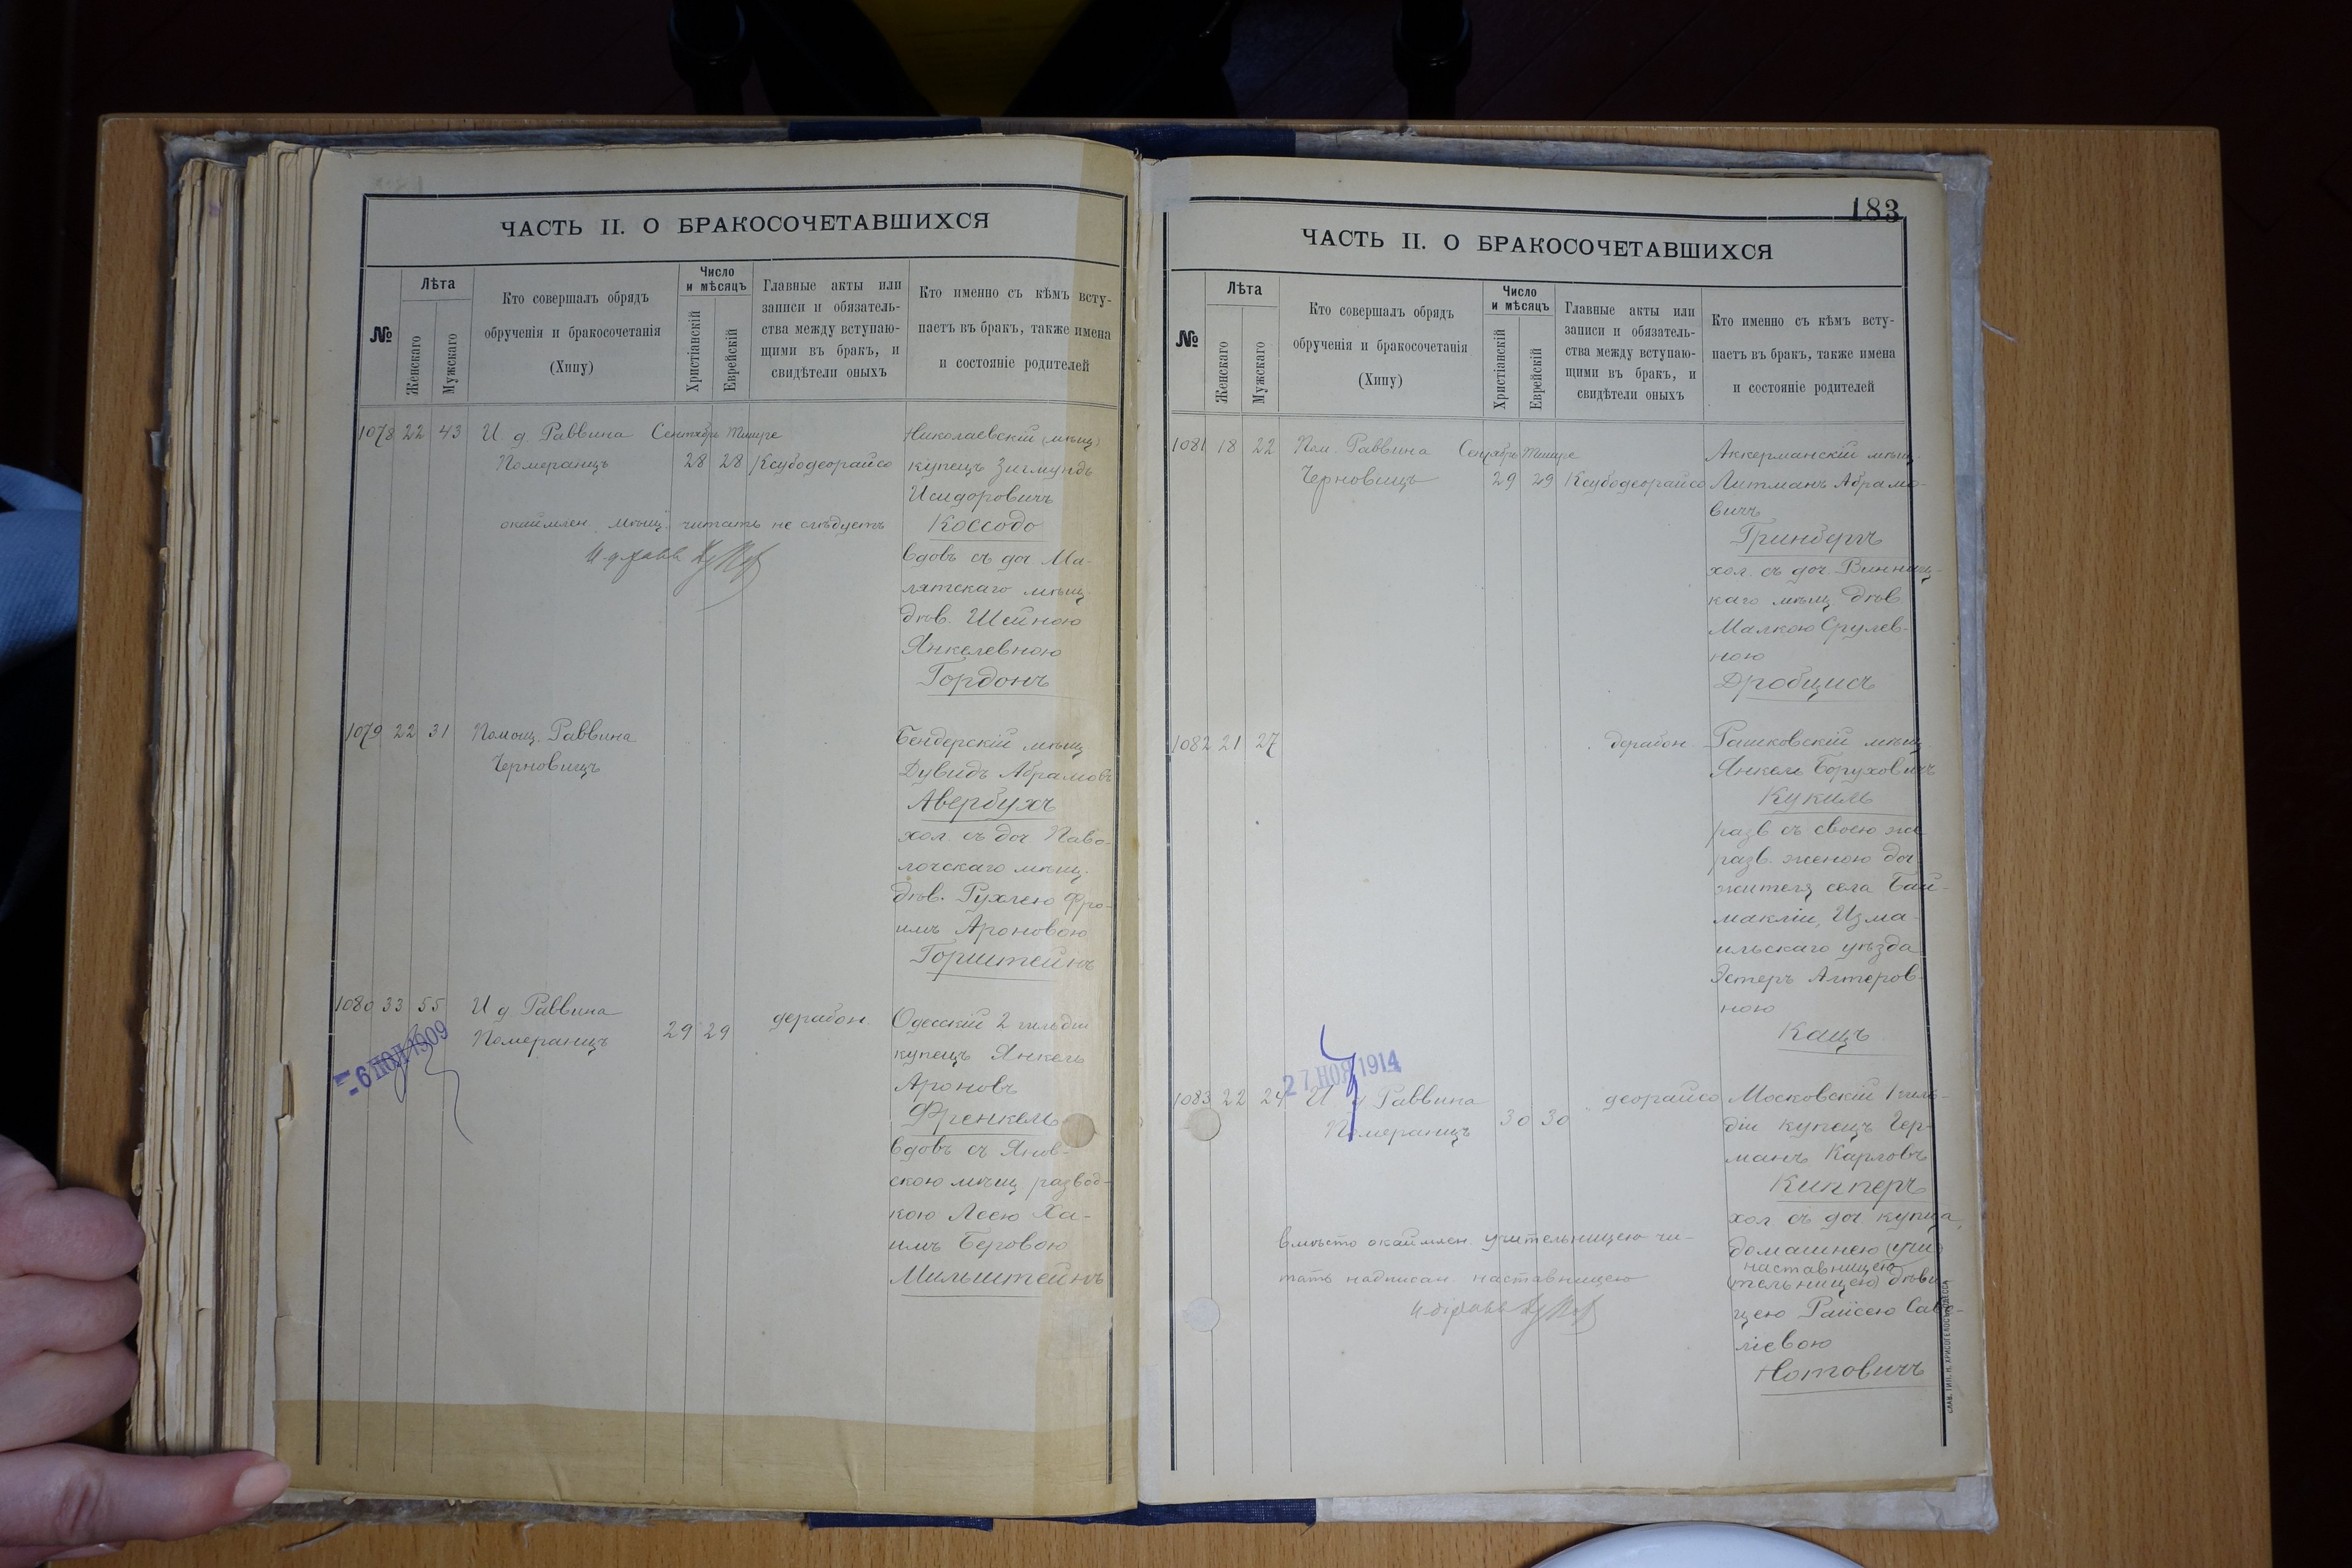 ЧАСТЬ II. О БРАКОСОЧЕТАВШИХСЯ
№
Лѣта
Женскаго
Мужскаго
Кто совершалъ обрядъ
обрученія и бракосочетанія
(Хипу)
Число
и мѣсяцъ
Христіанскій
Еврейскій
Главные акты или
записи и обязатель-
ства между вступаю-
щими въ бракъ, и
свидѣтели оныхъ
Кто именно съ кѣмъ всту-
паетъ въ бракъ, также имена
и состояніе родителей
1078 22 43 И. д. Раввина Сентябрь Тишре
Померанцъ 28 28 Ксубодеорайсо
окаймлен. мѣщ. читать не слѣдуетъ
И д равв
Николаевскій (мѣщ)
купецъ Зигмундъ
Исидоровичъ
Коссодо
вдовъ съ доч Ма-
лятскаго мѣщ.
дѣв. Шейною
Янкелевною
Гордонъ
1079 22 31 Помощ. Раввина
Черновицъ
Бендерскій мѣщ
Дувидъ Абрамовъ
Авербухъ
хол. съ доч Паво-
лочскаго мѣщ.
дѣв. Рухлею Фро-
имъ Ароновою
Горштейнъ
1080 33 55 И д Раввина
Померанцъ 29 29 дерабон.
- 6 НОЯ 1909
Одесскій 2 гильдіи
купецъ Янкель
Ароновъ
Френкель
вдовъ съ Янов-
скою мѣщ. развод-
кою Леею Ха-
имъ Беровою
Мильштейнъ
183
ЧАСТЬ II. О БРАКОСОЧЕТАВШИХСЯ
№
Лѣта
Женскаго
Мужскаго
Кто совершалъ обрядъ
обрученія и бракосочетанія
(Хипу)
Число
и мѣсяцъ
Христіанскій
Еврейскій
Главные акты или
записи и обязатель-
ства между вступаю-
щими въ бракъ, и
свидѣтели оныхъ
Кто именно съ кѣмъ всту-
паетъ въ бракъ, также имена
и состояніе родителей
1081 18 22 Пом. Раввина Сентябрь Тишре
Черновицъ 29 29 Ксубодеорайсо
Аккерманскій мѣщ.
Литманъ Абрамо-
вичъ
Гринбергъ
хол. съ доч. Винниц-
каго мѣщ. дѣв.
Малкою Срулев-
ною
Дробцисъ
1082 21 27 дерабон.
Рашковскій мѣщ
Янкель Боруховичъ
Кукиль
разв. съ своею же
разв. женою доч.
жителя села Бай-
макліи, Изма-
ильскаго уѣзда
Эстеръ Алтеров-
ною
Кацъ
27 НОЯ 1914
1083 22 24 И д Раввина
Померанцъ 30 30 " деорайсо
Московскій 1 гиль-
діи купецъ Гер-
манъ Карловъ
Кипперъ
хол. съ доч. купца,
домашнею (учи
наставницею
тельницею) дѣви-
цею Райсею Саве-
ліевою
Нотовичъ
вмѣсто окаймлен. учительницею чи-
тать надписан. наставницею
И д равв
СЛАВ. ТИП. Н. ХРИСОГЕЛОСЪ, ОДЕССА